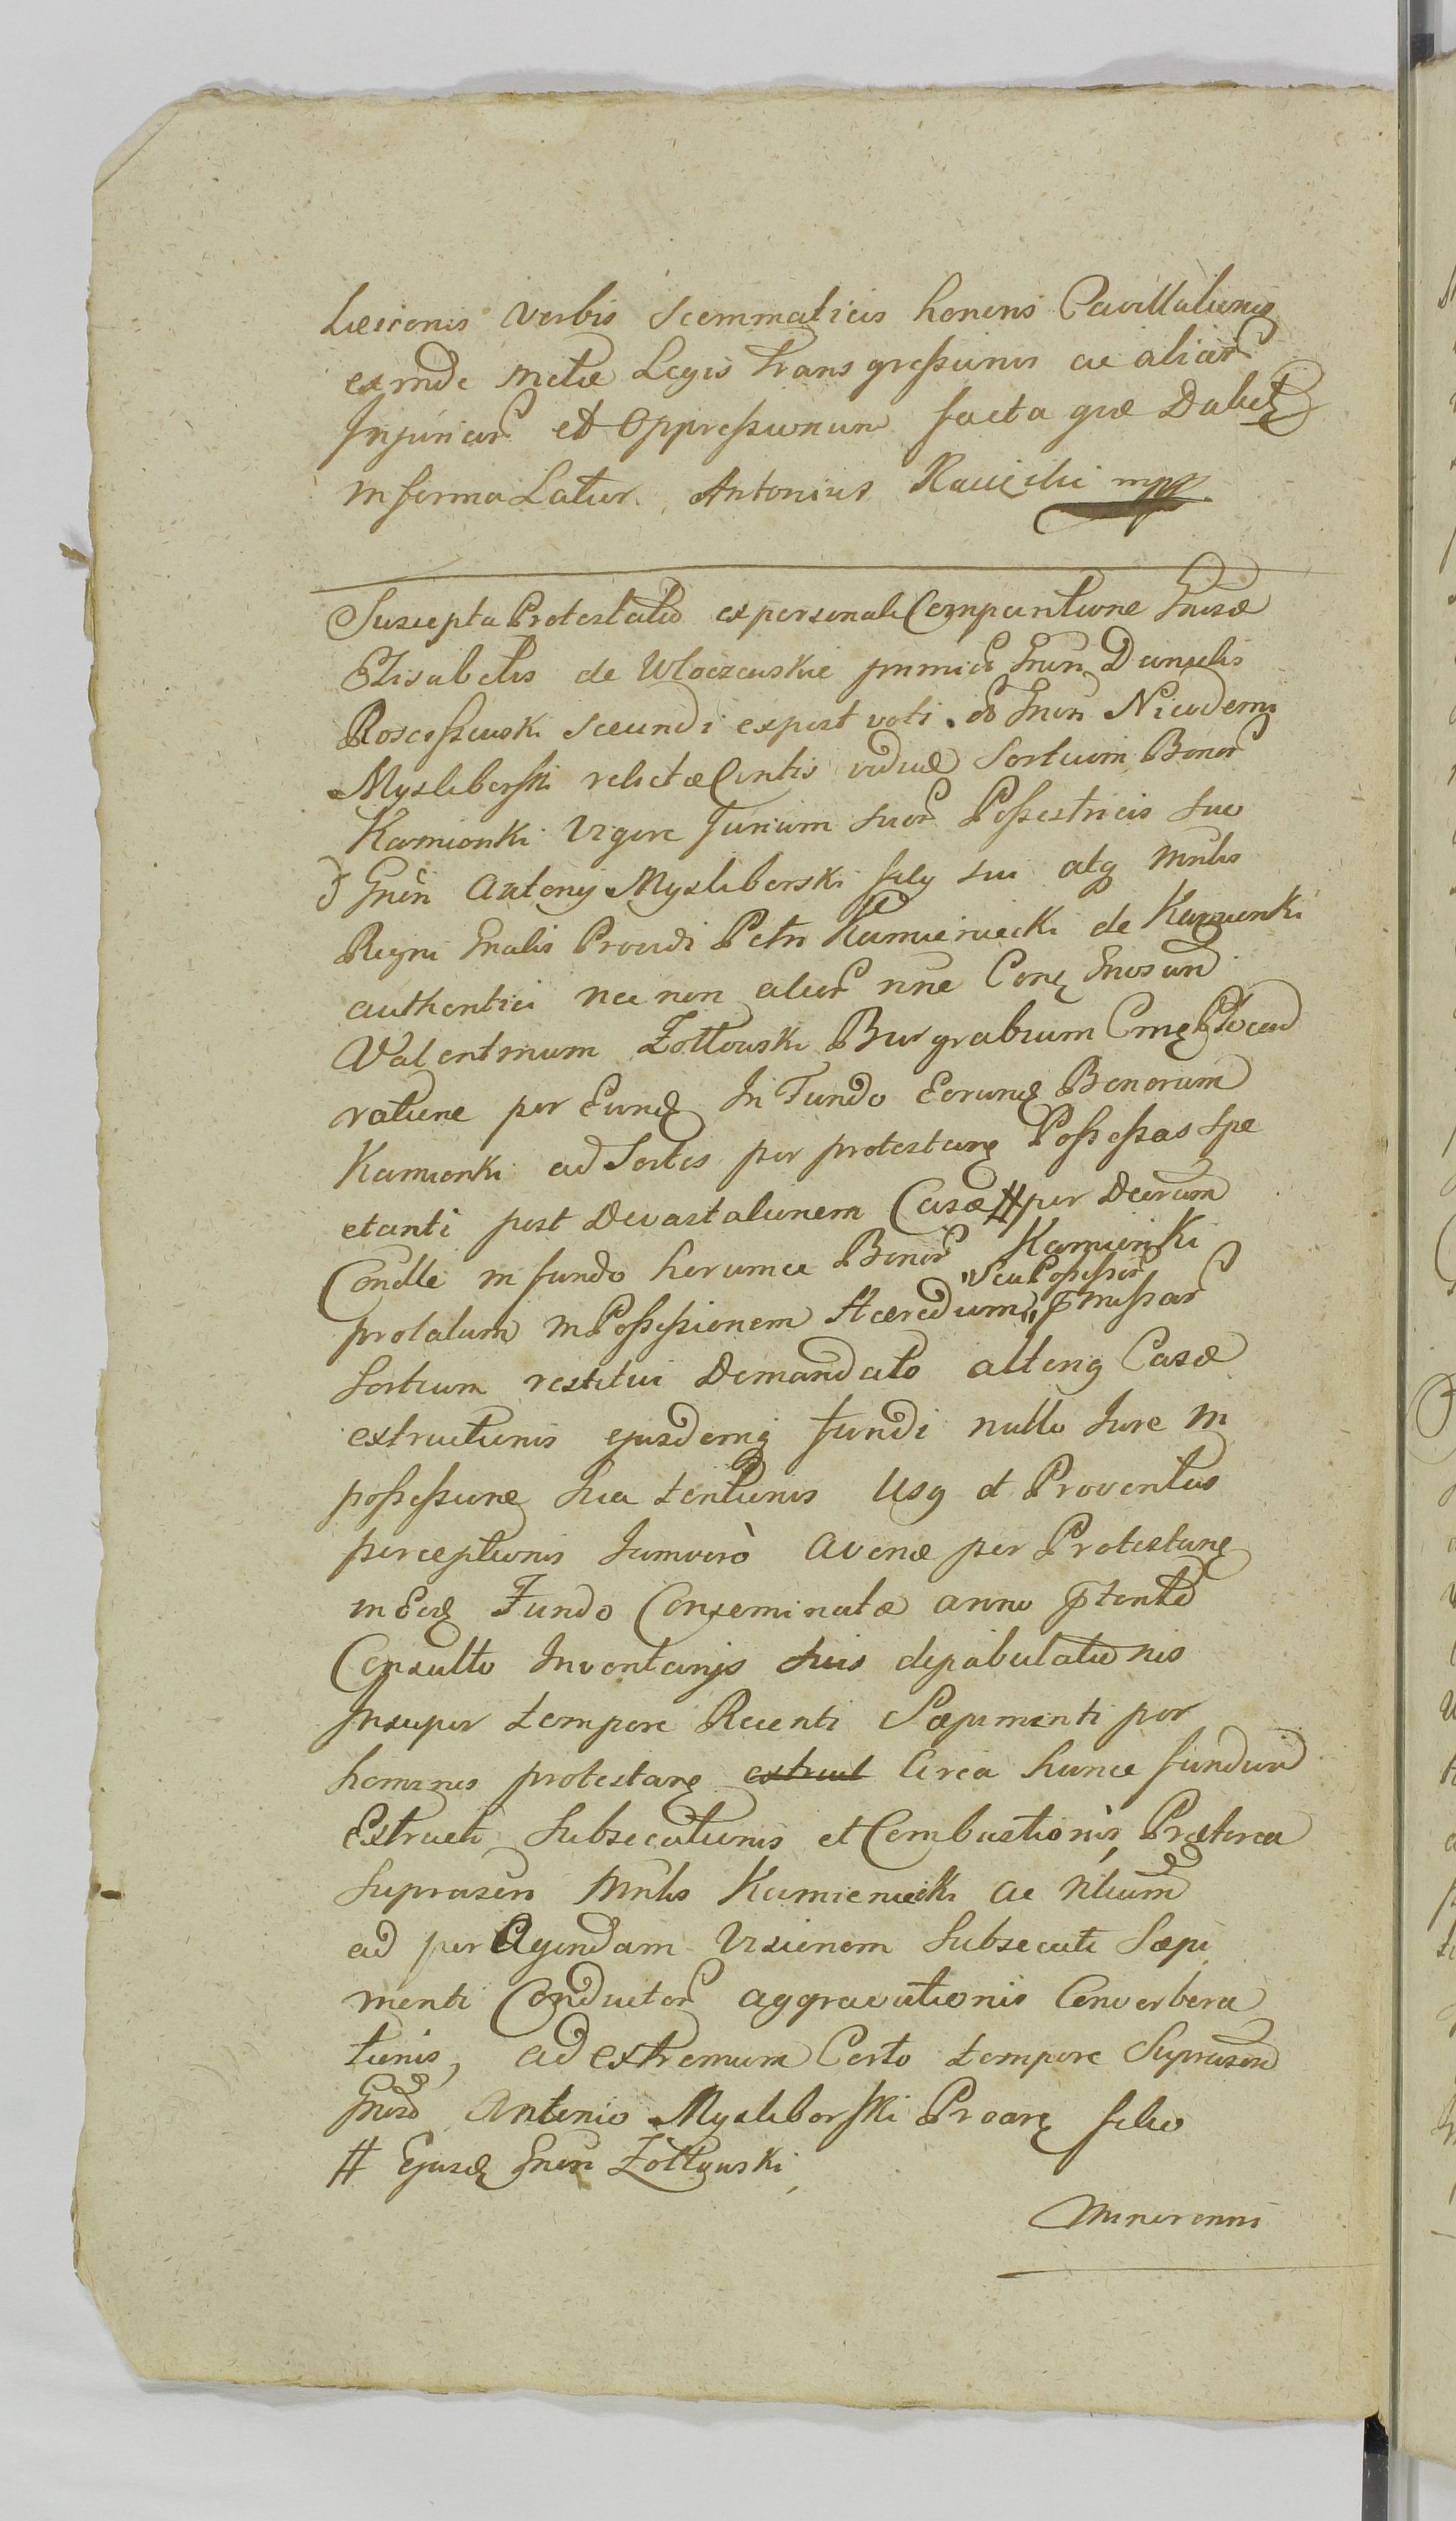 Læsionis verbis scommaticis honoris Cavillationis
exinde metæ Legis transgressionis ac alior
Injuriar et Oppressionum facta quæ Dabit
in forma Latior. Antonius mpp
Suscepta Protestatio ex personali Comparitione Gnosæ
Elisabethis de Wloczewskie primi Gnsi Danielis
Roscissewski secundi expost voti. Gnsi Nicodemi
Mysliborski relictæ Contis viduæ Sortium Bonor
Kamionki vigore Jurium suor Possestricis suo
Gnsi Antonij Mysliborski filij sui atq Mnlis
Regni Gnalis Providi Petri Kamieniecki de Kamionki
authentici nec non alior nne Conq Gnosum
Valentinum Zołtowski Burgrabium Cmę Płocen
ratione per Eundę In Fundo Eorundę Bonorum
Kamionki ad Sortes per protestanę Possessas spe
ctanti post Devastationem Casæ # per Decretum
Condle in fundo horumce Bonor Kamionki
protatum in Possessionem Hæredum "seu Possessor" pmissar
Sortium restitui Demandato alteriq Casæ
extructionis ejusdemq fundi nullo Jure in
possessionę sua tentionis Usq et Proventus
perceptionis Jamverò avenæ per Protestanę
in Eodę Fundo Conseminatæ anno ptento
Consulto Inventarijs suis depabulationis
Insuper tempore Recenti Sæpimenti per
homines protestanę extruct Circa hunce fundum
Extructi Subsecationis et Combustionis, Præterea
suprascri Mnlis Kamieniecki ac
ad per Agendam Visionem Subsecati Sæpi
menti Conductor aggravationis Converbera
tionis, ad extremum Certo tempore Suprascri
Gnoso Antonio Mysliborski Proanę filio
# Ejusdę Gnsi Zołtowski
Minorenni